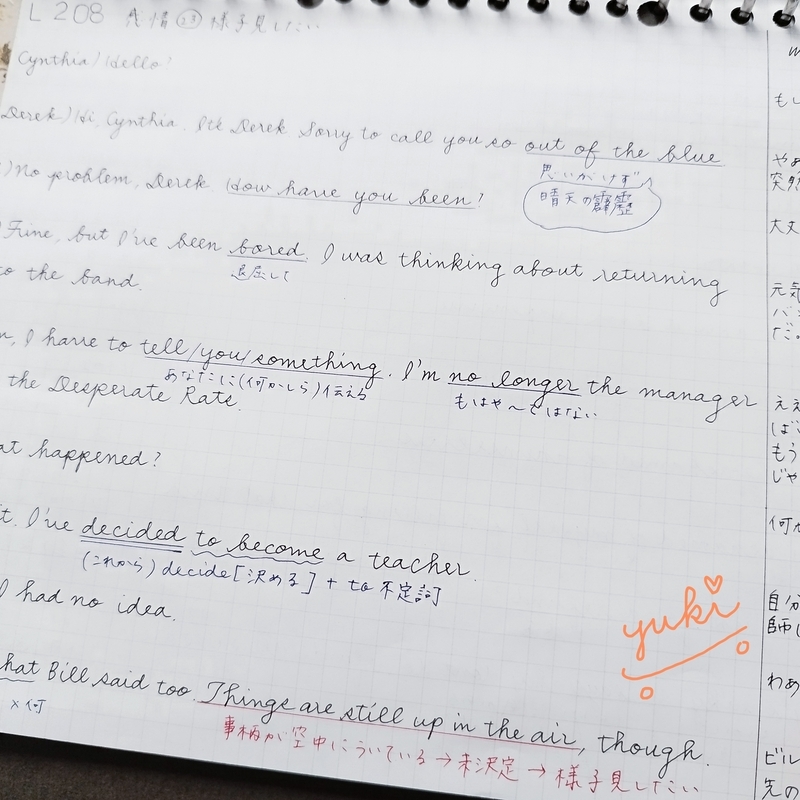 L 208 感情㉓ 様子見したい
Cynthia) Hello?
Derek) Hi, Cynthia. It's Derek Sorry to call you so out of the blue
思いがけず
晴天の霹靂
) No problem, Derek How have you been?
) Fine, but I've been bored. I was thinking about returning
退屈して
to the band.
I have to tell/you/something. I'm no longer the manager
あなたに(何かしら)伝える
もはや〜ではない
the Desperate Rats.
at happened?
it. I've decided to become a teacher.
(これから) decide [決める] + to 不定詞
I had no idea.
hat Bill said too. Things are still up in the air, though.
×何
事柄が空中にういている→未決定→様子見したい
yuki
もし
やあ
突然
大丈
元気
バン
だ。
ええ
ばこ
もう
じゃ
何か
自分
師に
わあ
ビル
先の